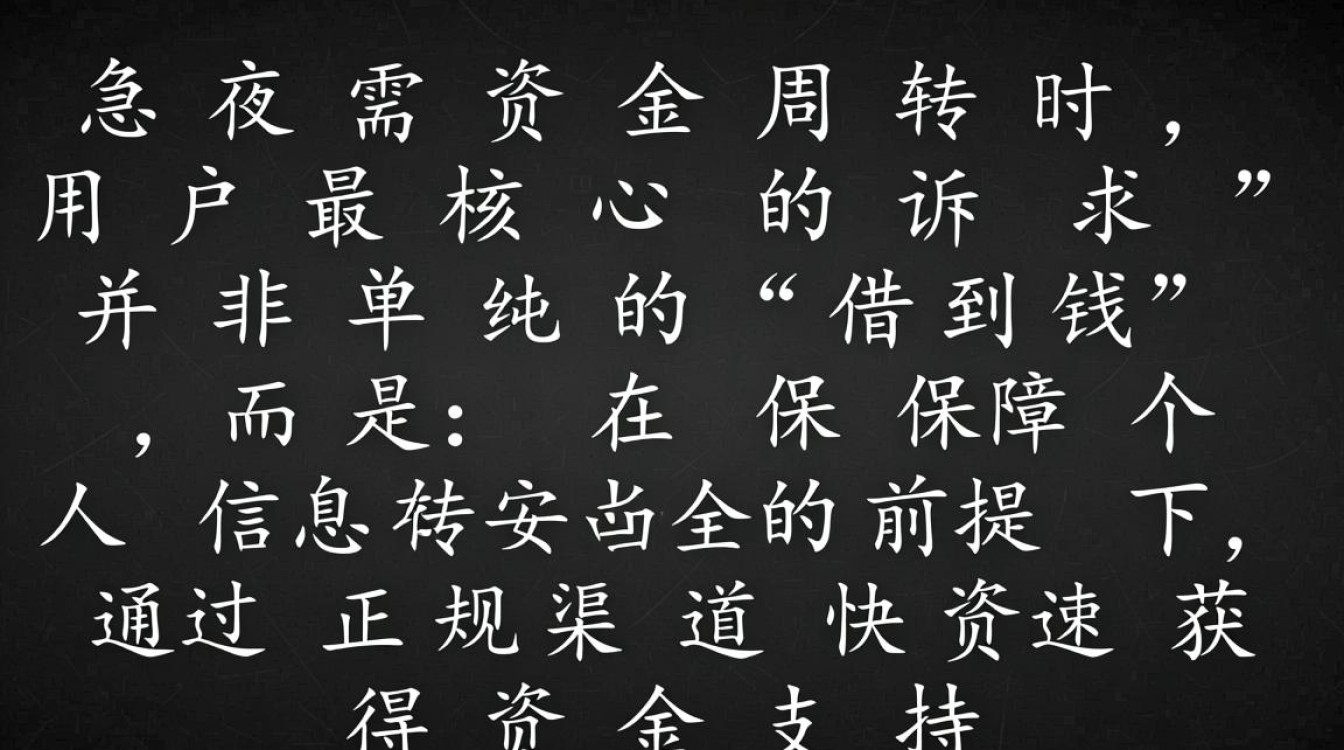 急夜需资金周转时，
用户最核心的诉求”
并非单纯的“借到钱”
，而是：在保保障个
人信息安全的前提下，
通过正规渠道快资速获
得资金支持